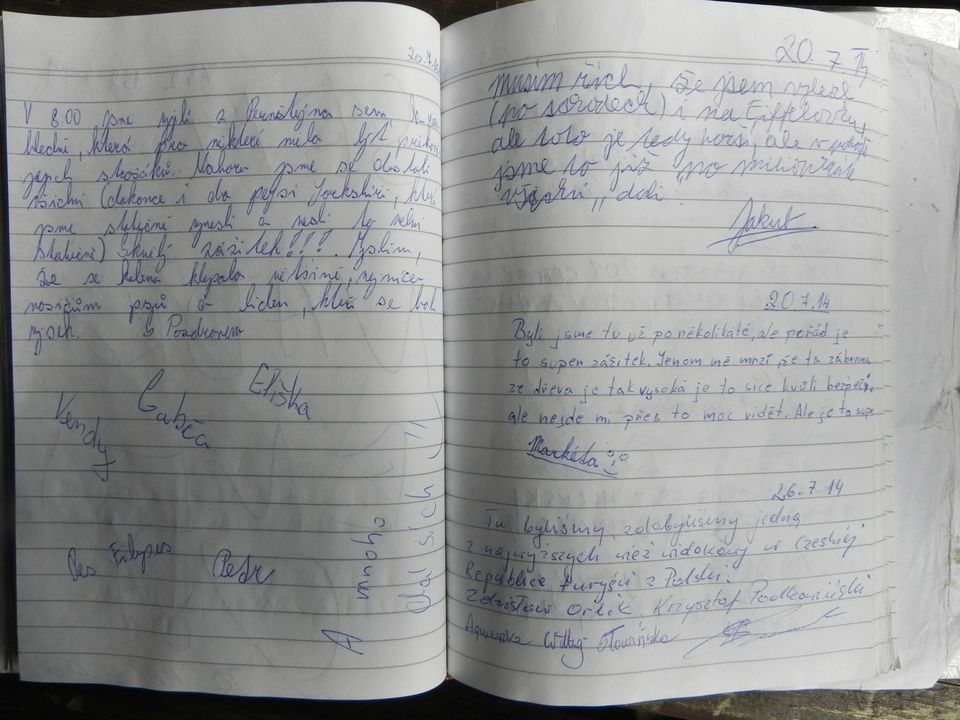 V 8.00 jsme vyjeli z Pernštejna sem, k roz
hledně, která pro některé měla být
jejich strašáků. Nahoru jsme se dostali
všichni (dokonce i dva pejsci Yorkshiři, které
jsme statečně vynesli a nesli to velmi
statečně) Skvělý zážitek!!! . Myslím,
že se kolena klepala většině, nejvíce
nosičům psů a lidem, kteří se bojí
výšek. S Pozdravem
Eliška
Gabča
Vendy
Pes Filipes
Petr
A mnoho
dalších !!
20. 7. 14
Musím říct, že jsem vylezl
(po schodech) i na Eiffelovku,
ale toto je tedy horší, ale v pohodě
jsme to již "po
všichni" dali.
Jakub
20.7.14
Byli jsme tu už poněkolikáté, ale pořád je
to supen zážitek. Jenom mě mrzí, že ta zábrana
ze dřeva je tak vysoká je to sice kvůli bezpeč.,
ale nejde mi přes to moc vidět. Ale je to supr
Markéta
26.7.14
Tu byliśmy, zdobyliśmy jedną
z najwyższych wież widokowy w Czeskiej
Republice turyści z Polski.
Zdzisław Orlik, Krzysztof
Agnieszka Słowińska